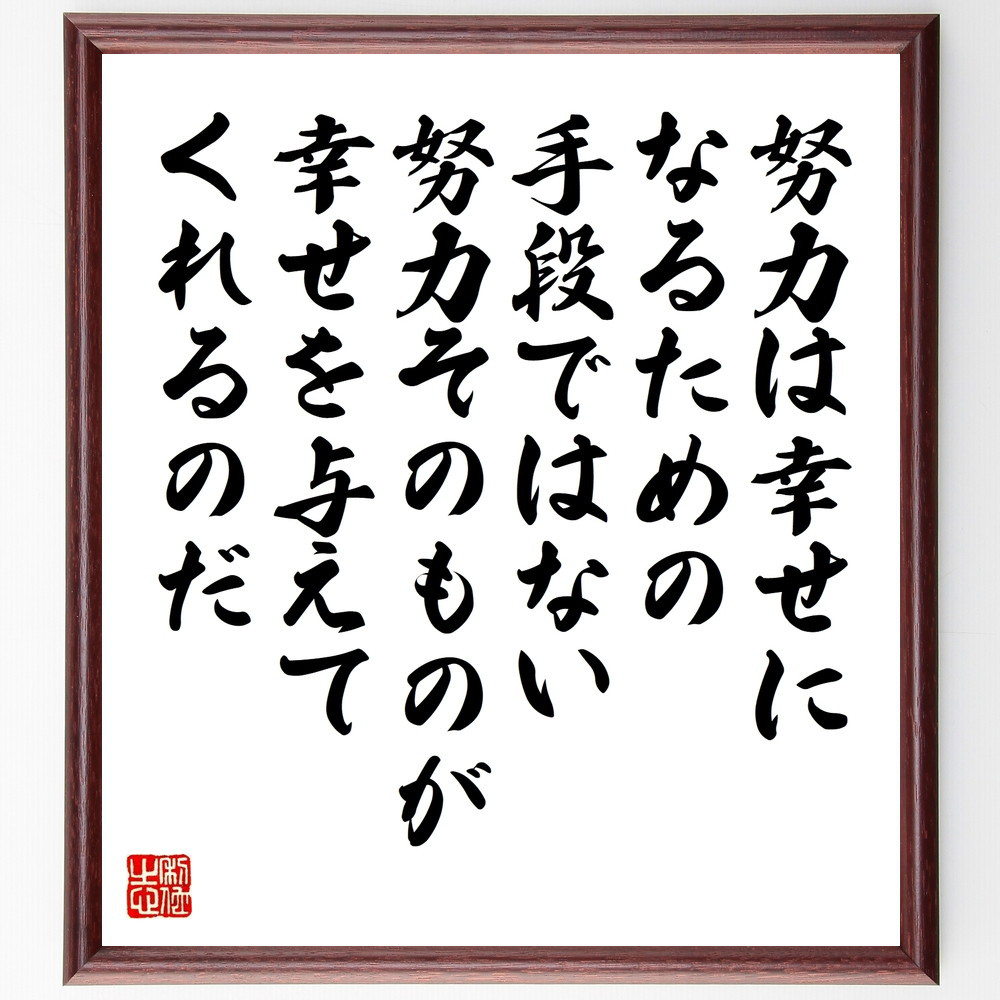 努力は幸せに
なるための
手段ではない
努力そのものが
幸せを与えて
くれるのだ